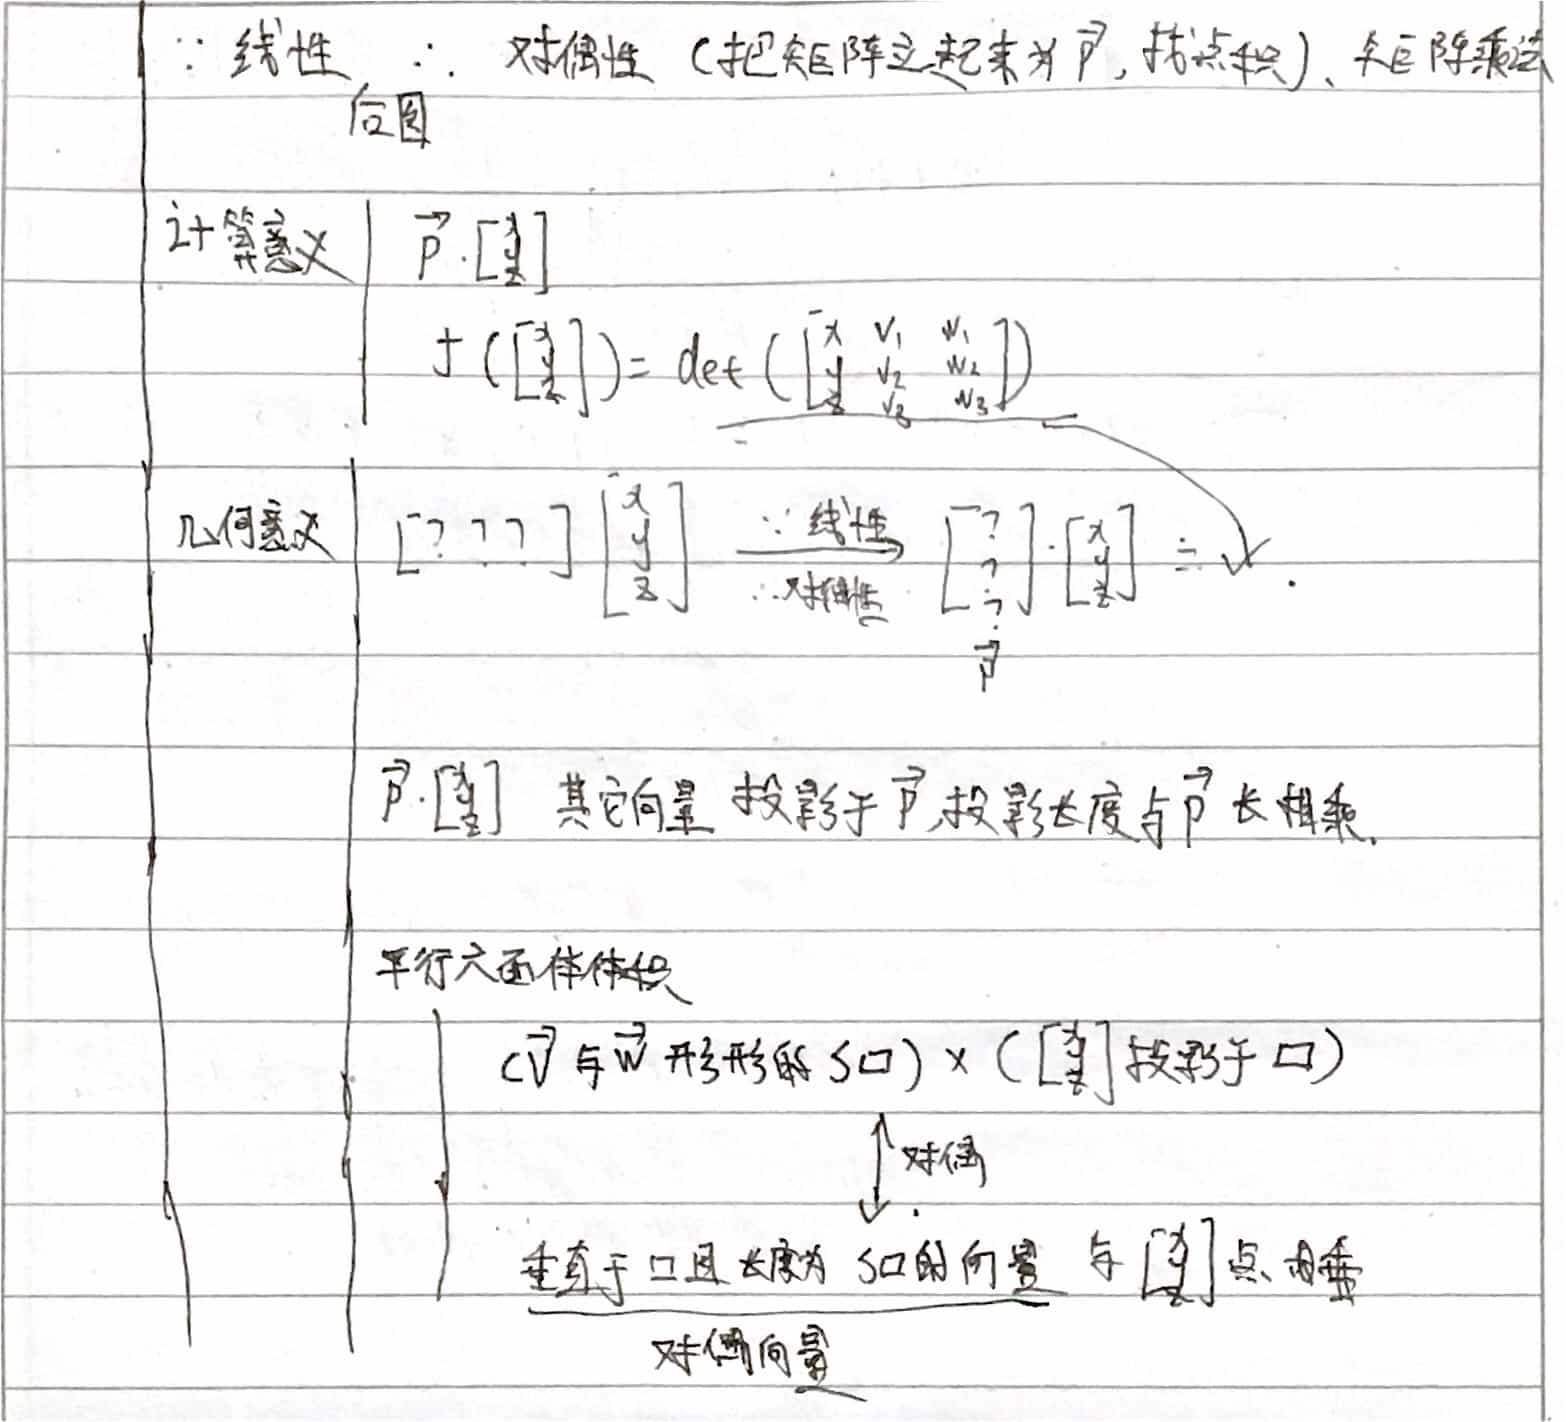 ∵ 线性 ∴ 对偶性 (把矩阵立起来为 p⃗, 找点积)、矩阵乘法
后图
计算意义 p⃗·[x y z]
f([x y z]) = det([x v₁ w₁ y v₂ w₂ z v₃ w₃])
几何意义 [? ? ?][x y z] ∵线性 ∴对偶性 [? ? ?]·[x y z] =
p⃗
p⃗·[x y z] 其它向量 投影于 p⃗,投影长度与 p⃗ 长相乘.
平行六面体体积
(v⃗ 与 w⃗ 形形的 S□) × ([x y z] 投影于 □)
对偶
垂直于 □且 长度为 S□的向量 与 [x y z] 点相乘
对偶向量